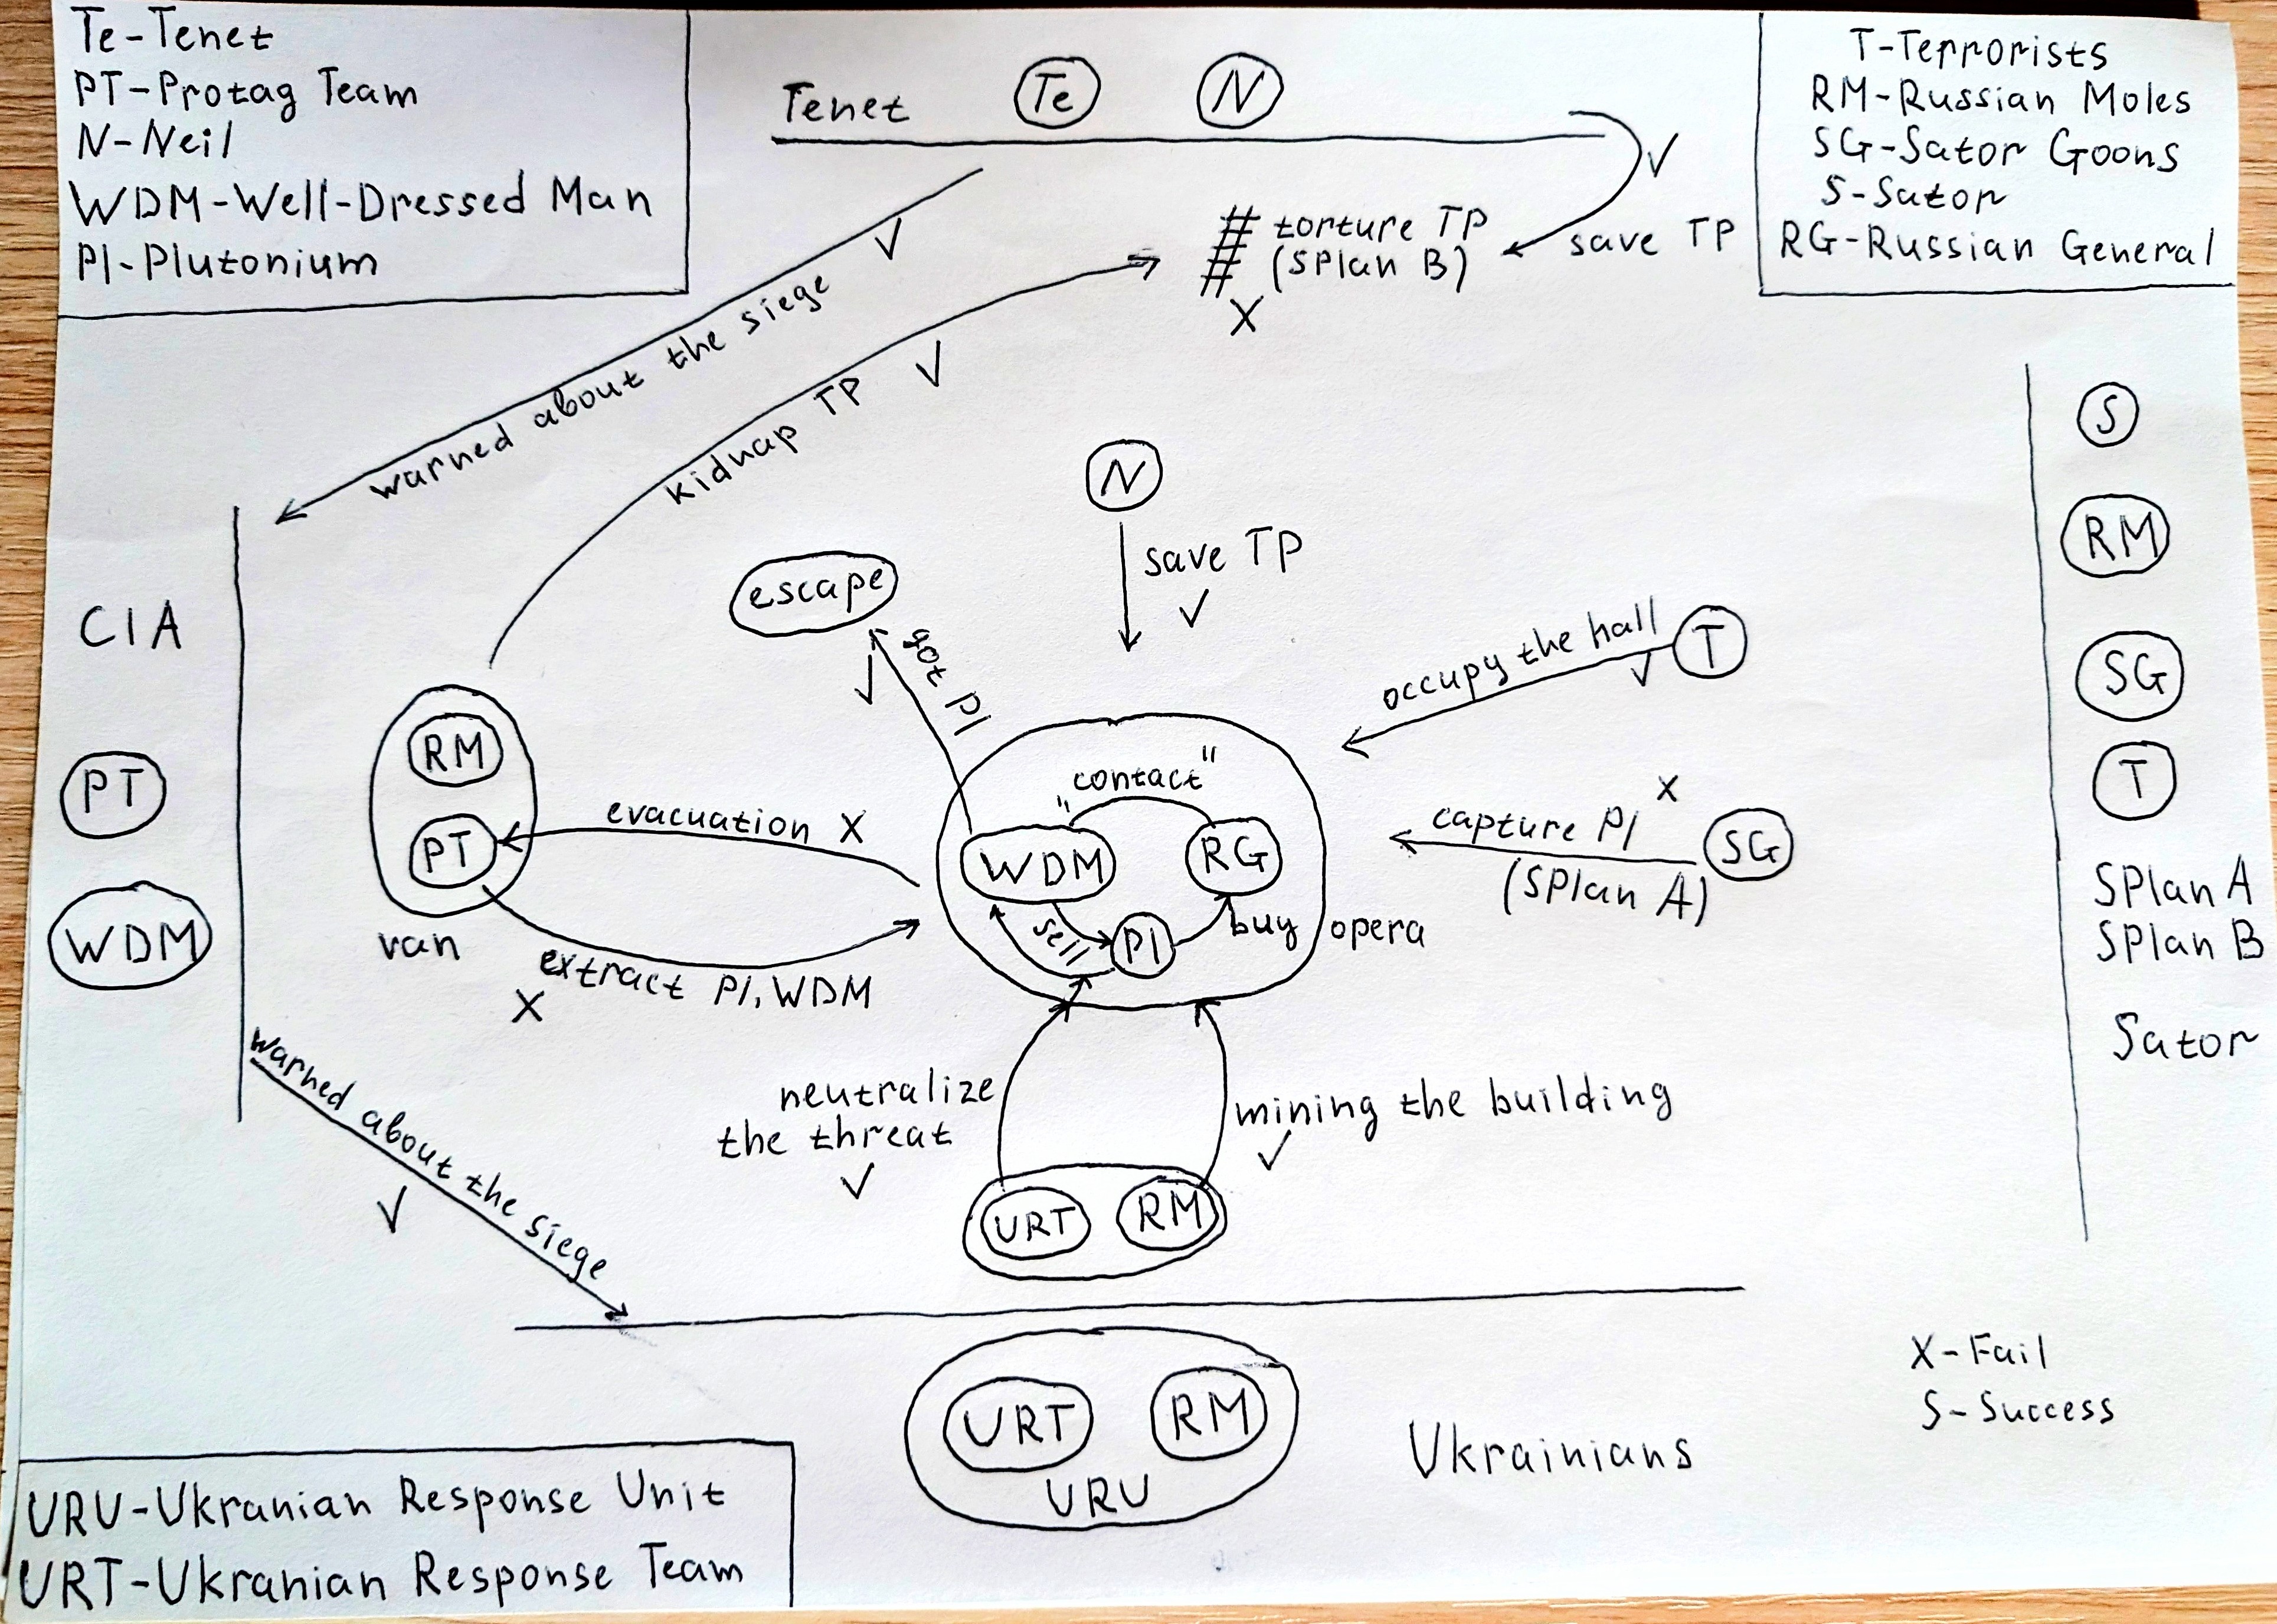 Te-Tenet
PT-Protag Team
N-Neil
WDM-Well-Dressed Man
Pl-Plutonium
Tenet
Te
N
T-Terrorists
RM-Russian Moles
SG-Sator Goons
S-Sator
RG-Russian General
✓
save TP
# torture TP
# (SPlan B)
X
✓
warned about the siege
✓
kidnap TP
N
save TP
✓
escape
got Pl
✓
occupy the hall
✓
T
S
RM
SG
T
SPlan A
SPlan B
Sator
CIA
PT
WDM
RM
PT
van
evacuation X
extract Pl, WDM
X
"contact"
WDM
RG
sell
Pl
buy
opera
capture Pl X
(SPlan A)
SG
warned about the siege
✓
neutralize
the threat
✓
mining the building
✓
URT
RM
URT
RM
URU
Ukrainians
X-Fail
S-Success
URU-Ukranian Response Unit
URT-Ukranian Response Team